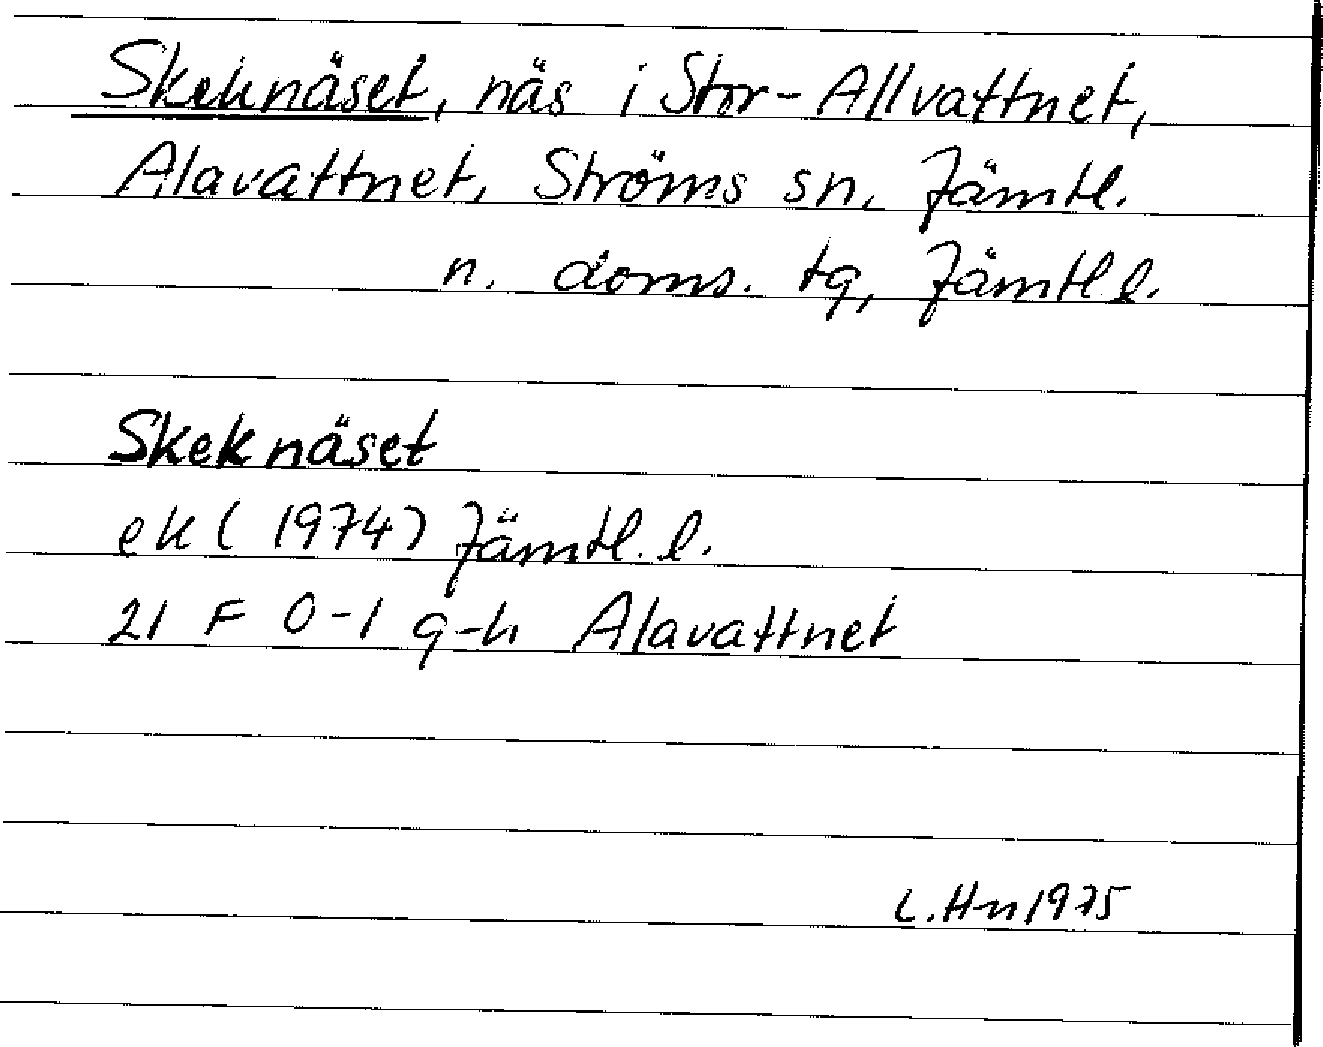 Skeknäset, näs i Stor-Allvattnet,
Alavattnet, Ströms sn, Jämtl.
n. doms. tg, Jämtl l.
Skeknäset
ek (1974) Jämtl. l.
21 F 0-1 g-h Alavattnet
L. Hn 1975